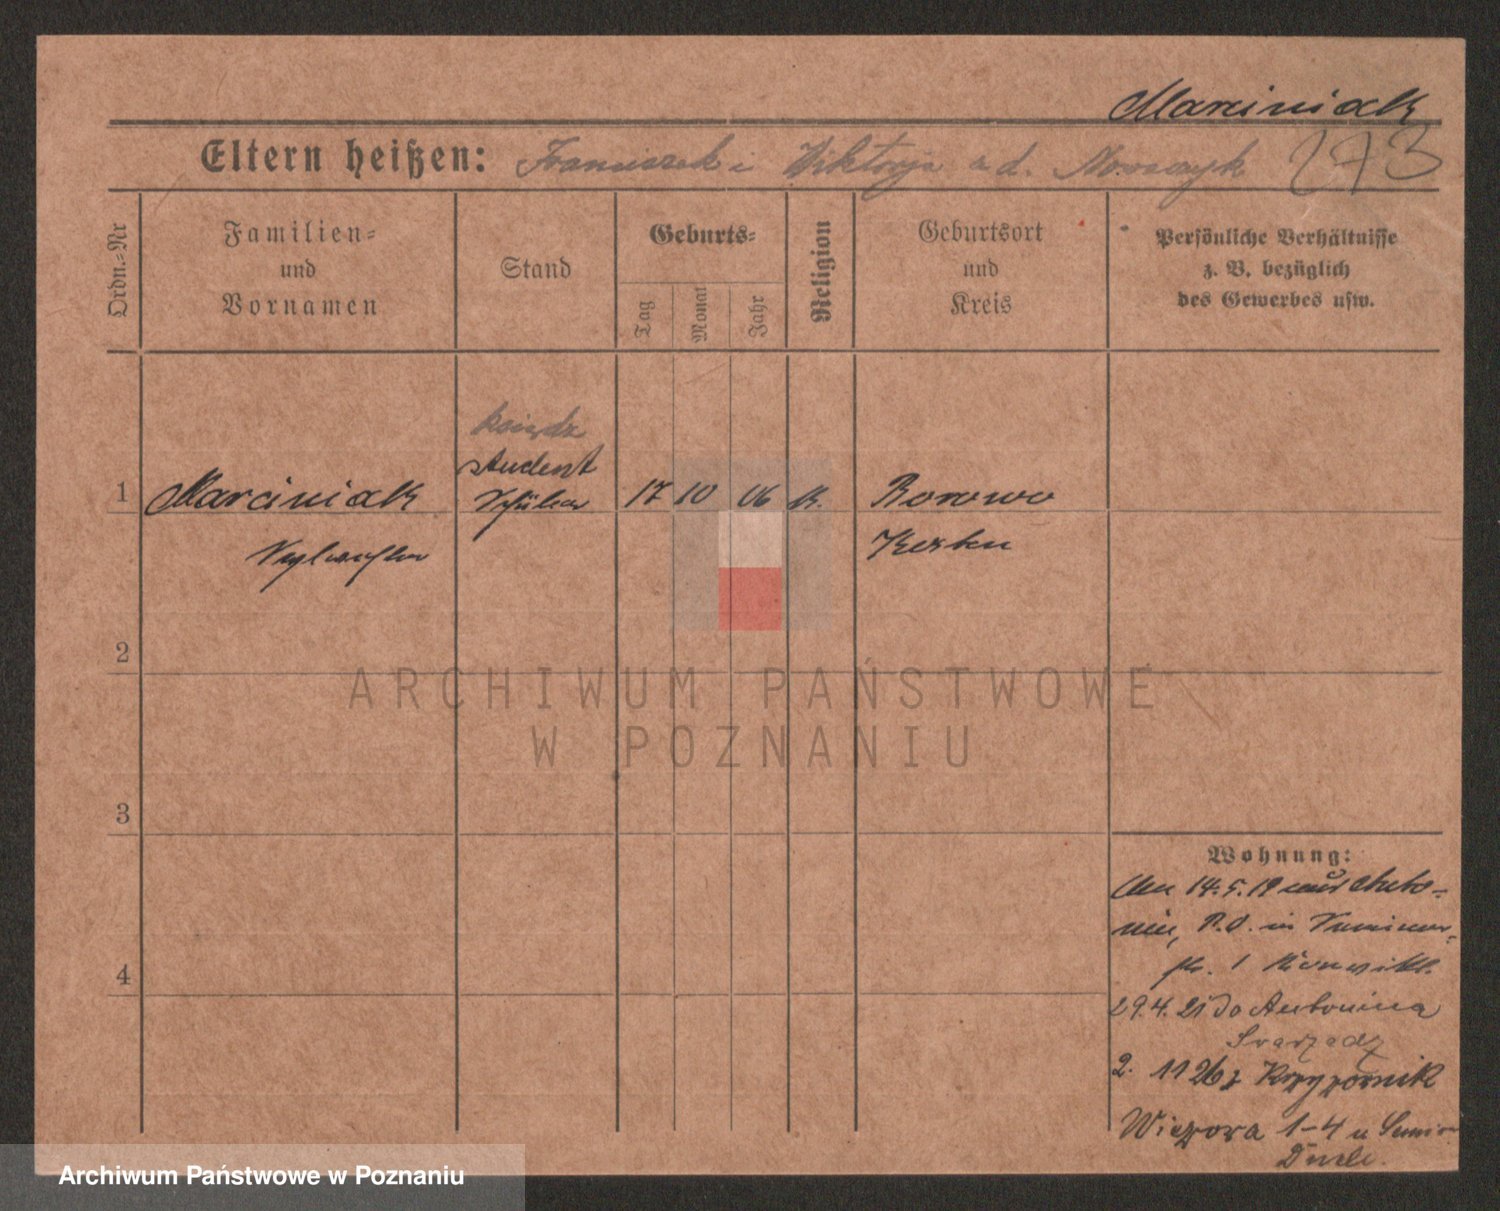 Marciniak
Eltern heißen: Franciszek i Wiktorja z d. Nowaczyk 273
Ordn.-Nr
Familien-
und
Vornamen
Stand
Geburts-
Tag
Monat
Jahr
Religion
Geburtsort
und
Kreis
Persönliche Verhältnisse
z. B. bezüglich
des Gewerbes usw.
ksiądz
student
1 Marciniak Schüler 17 10 06 K. Borowo
Kosten
2
ARCHIWUM PAŃSTWOWE
W POZNANIU
3
Wohnung:
14.5.19 aus Anto-
nin, P.O. in
str. 1 Konvikt.
4
29.4.21 do Antonina
Swarzędz
2. 11 26 z Krzyżownik
Wieżowa 1-4 u
Archiwum Państwowe w Poznaniu